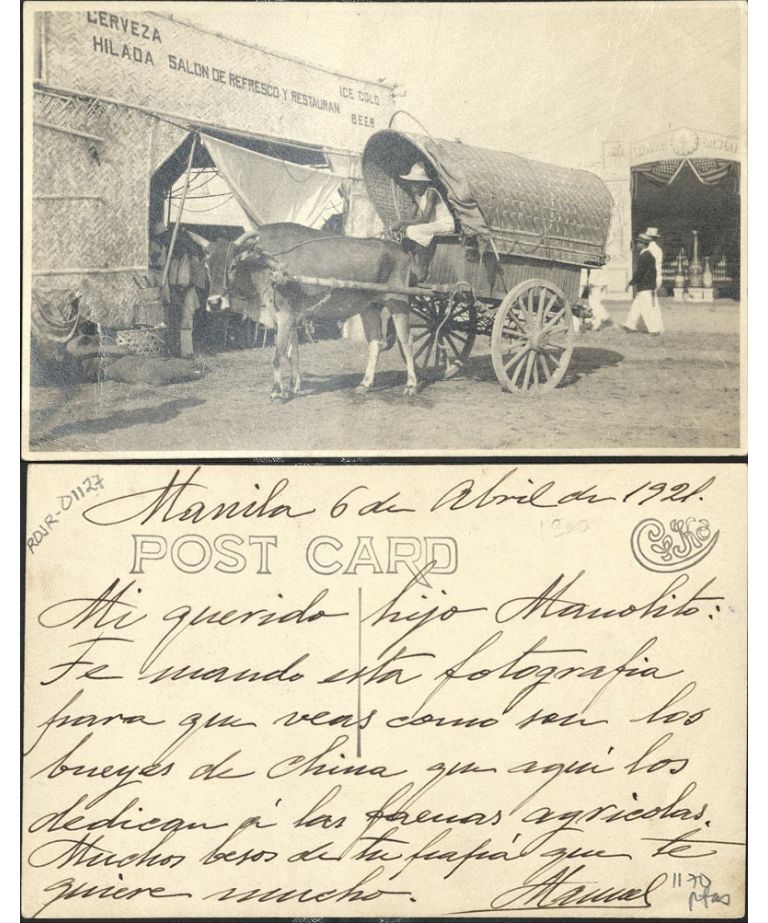 CERVEZA
HILADA SALON DE REFRESCO Y RESTAURAN ICE COLD
BEER
RDJR-01127
Manila 6 de Abril de 1921.
1300
POST CARD
Mi querido hijo Manolito:
Te mando esta fotografia
para que veas como son los
bueyes de China que aqui los
dedican á las faenas agricolas.
Muchos besos de tu papá que te
quiere mucho. Manuel
1170
ptas